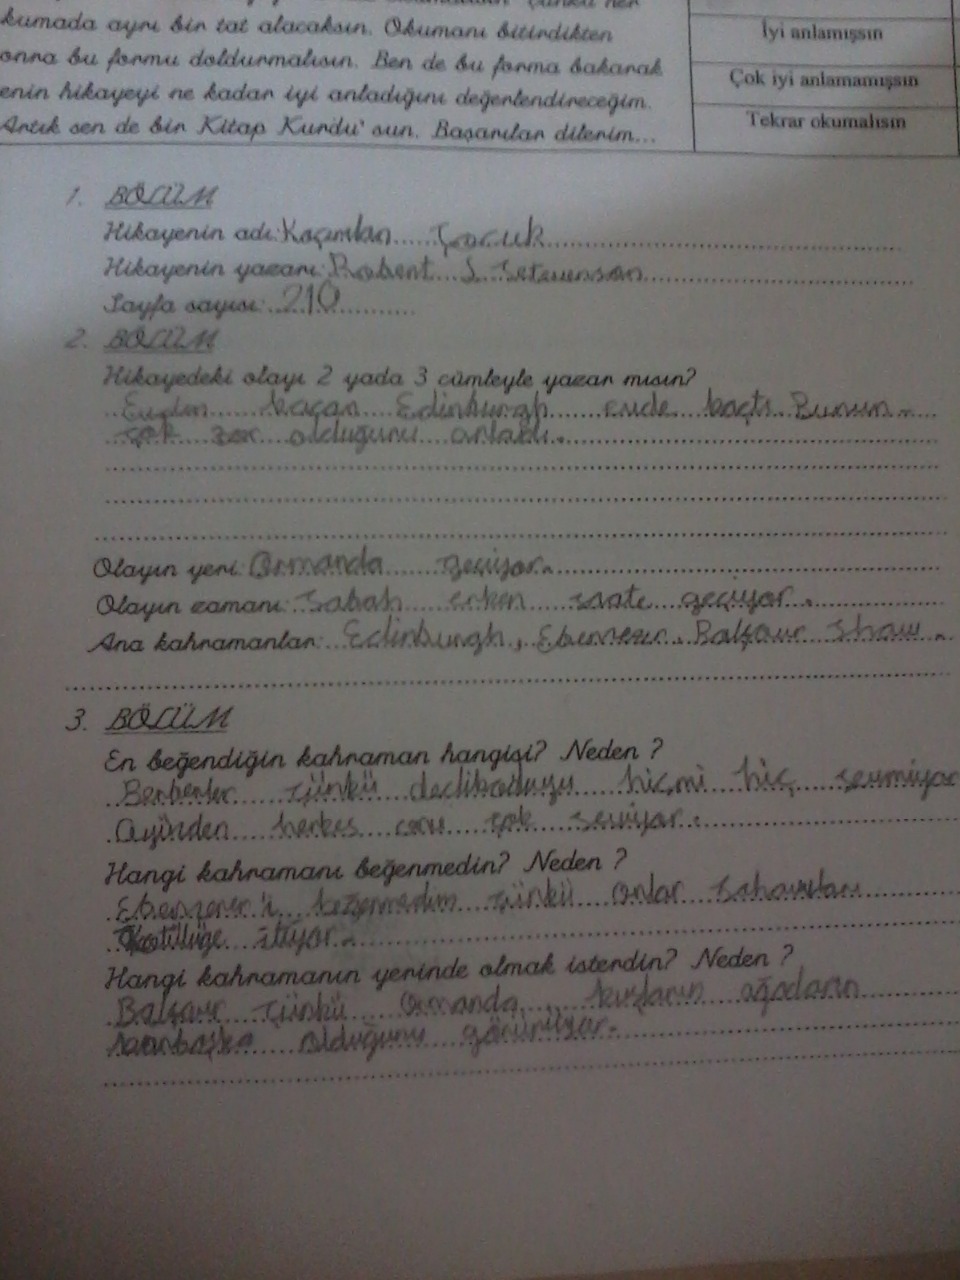 kumada ayrı bir tat alacaksın. Okumanı bitirdikten
onra bu formu doldurmalısın. Ben de bu forma bakarak
enin hikayeyi ne kadar iyi anladığını değerlendireceğim.
Artık sen de bir Kitap Kurdu' sun. Başarılar dilerim...
İyi anlamışsın
Çok iyi anlamamışsın
Tekrar okumalısın
1. BÖLÜM
Hikayenin adı: Kaçırılan Çocuk
Hikayenin yazarı: Robert S. Setevenson
Sayfa sayısı: 210
2. BÖLÜM
Hikayedeki olayı 2 yada 3 cümleyle yazar mısın?
Evden kaçan Edinburgh evde kaçtı Bunun
çok zor olduğunu anladı.
Olayın yeri: Ormanda geçiyor.
Olayın zamanı: Sabah erken saate geçiyor.
Ana kahramanlar: Edinburgh, Ebenezer, Balfaur Shaw
3. BÖLÜM
En beğendiğin kahraman hangisi? Neden ?
çünkü hiçmi hiç sevmiyor
herkes onu çok seviyor.
Hangi kahramanı beğenmedin? Neden ?
beğenmedim çünkü onlar
Kötülüğe itiyor.
Hangi kahramanın yerinde olmak isterdin? Neden ?
Balfaur çünkü Ormanda kuşların ağaçların
olduğunu görünüyor.